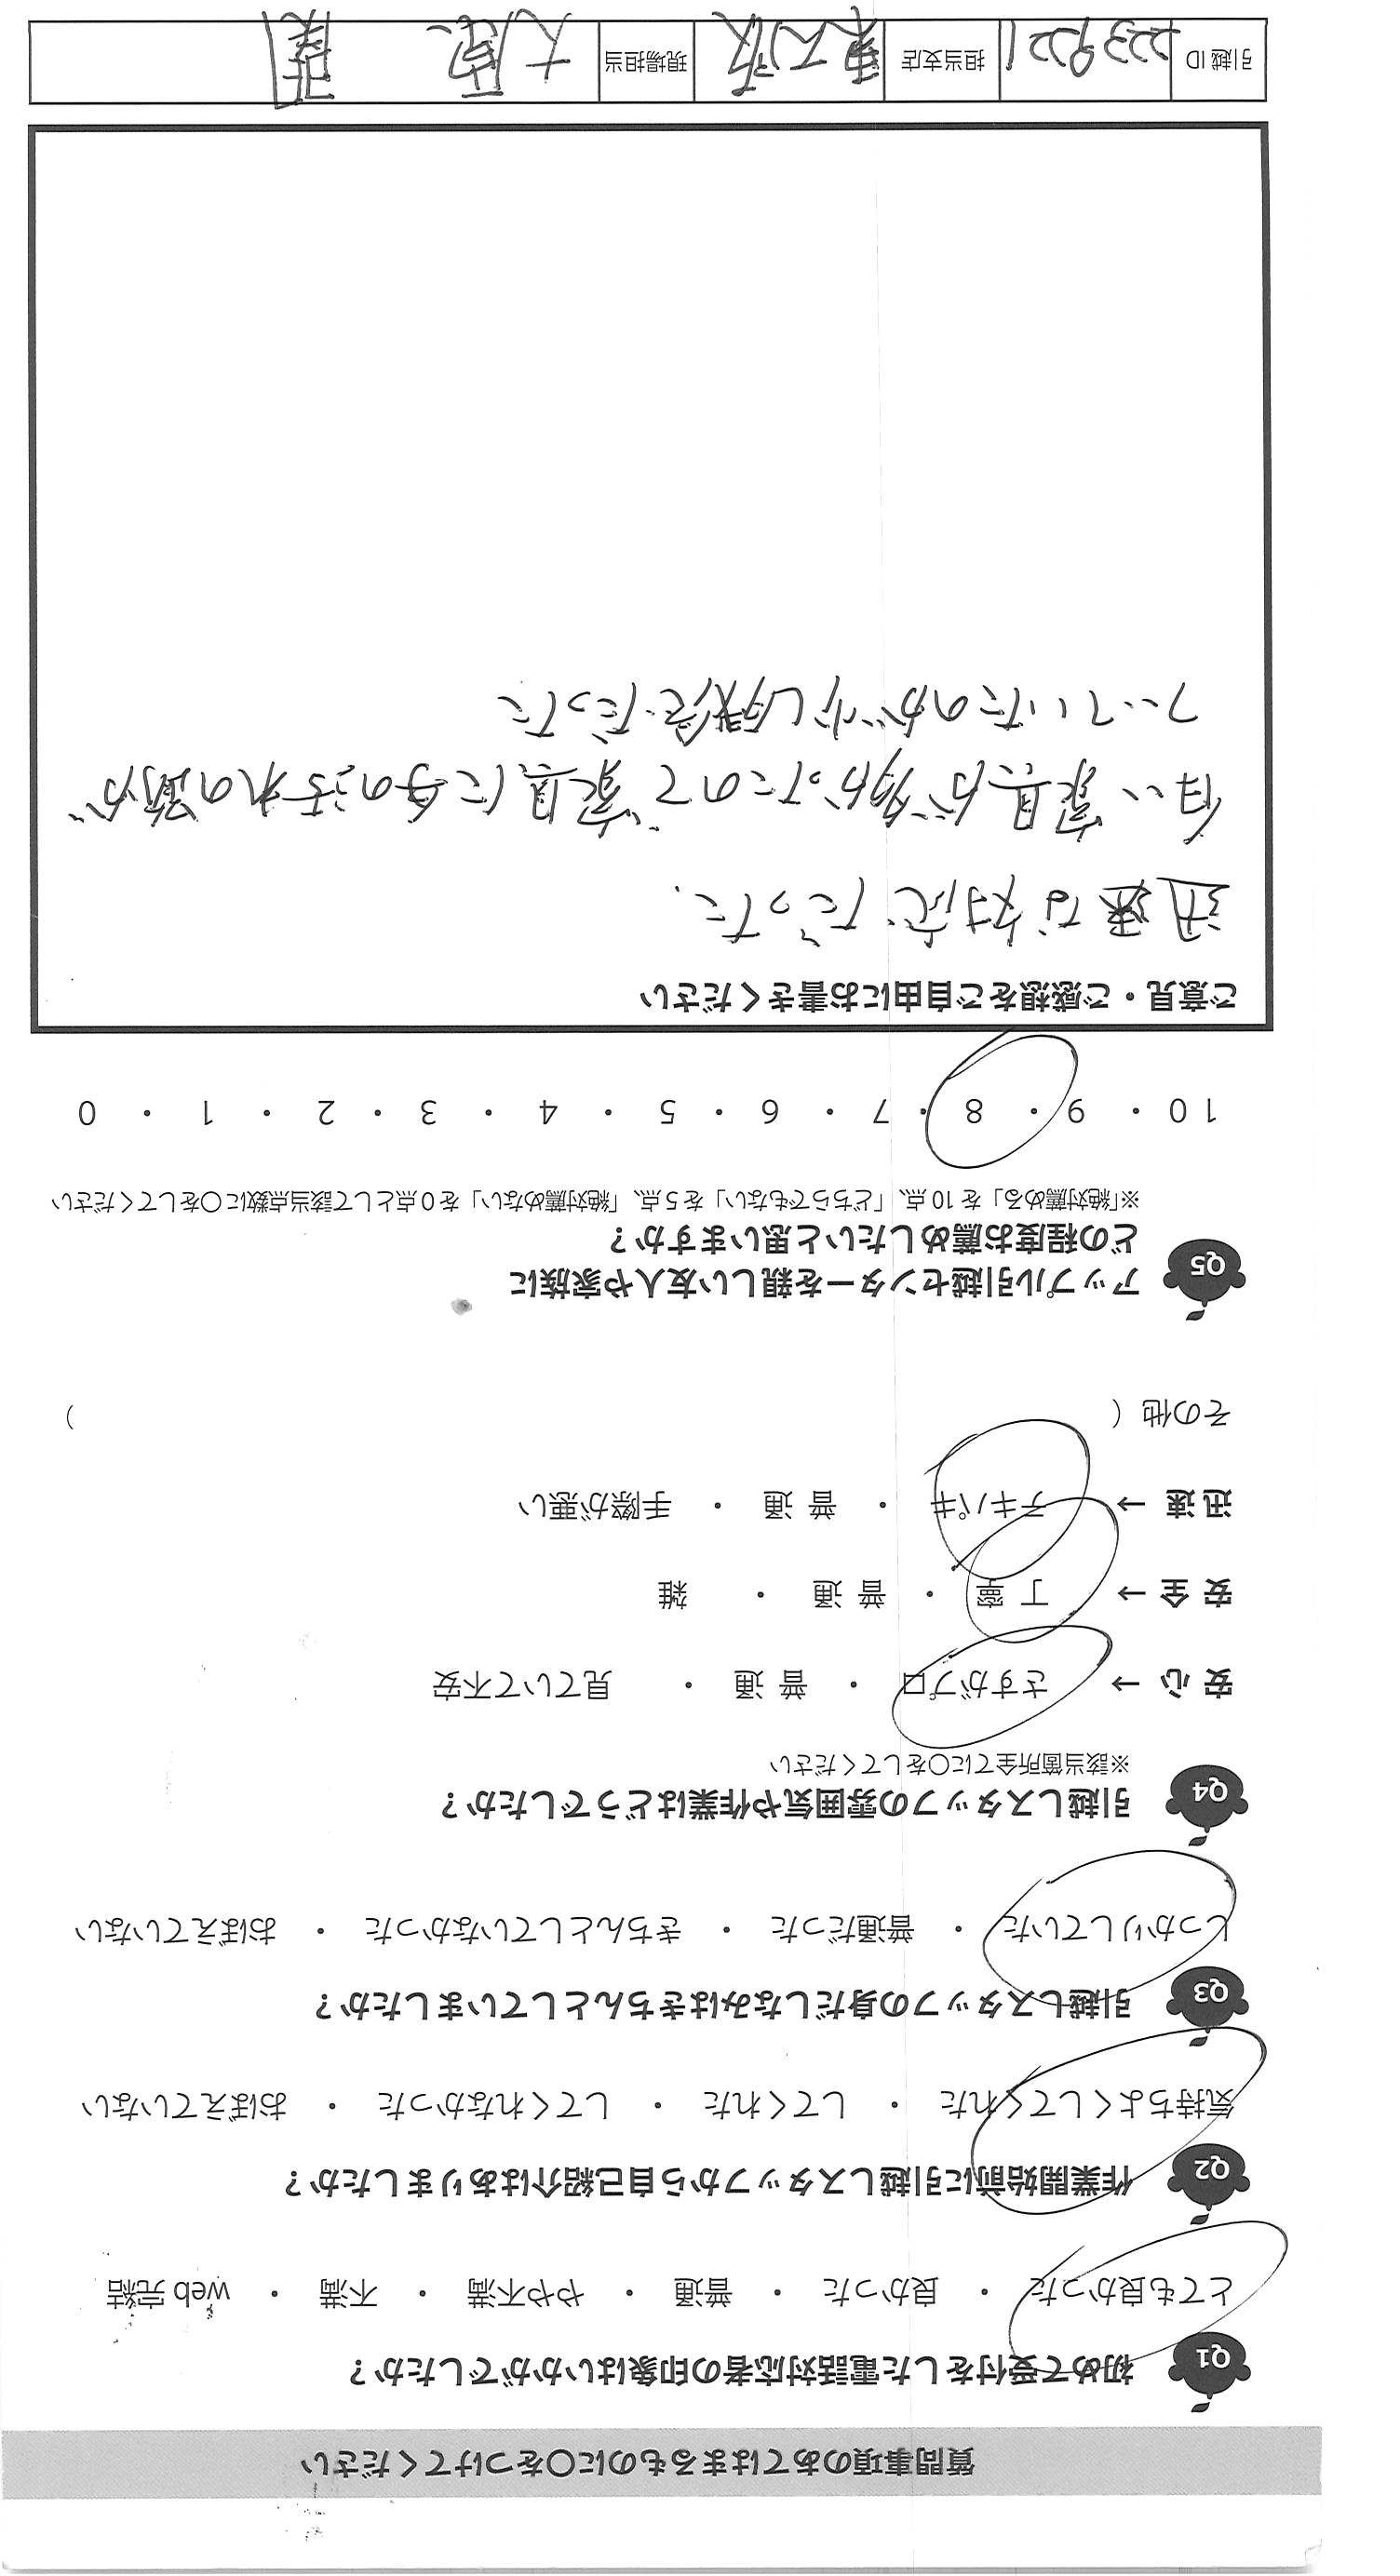 質問事項のあてはまるものに○をつけてください
Q1 初めて受付をした電話対応者の印象はいかがでしたか？
とても良かった ・ 良かった ・ 普通 ・ やや不満 ・ 不満 ・ web 完結
Q2 作業開始前に引越しスタッフから自己紹介はありましたか？
気持ちよくしてくれた ・ してくれた ・ してくれなかった ・ おぼえていない
Q3 引越しスタッフの身だしなみはきちんとしていましたか？
しっかりしていた ・ 普通だった ・ きちんとしていなかった ・ おぼえていない
Q4 引越しスタッフの雰囲気や作業はどうでしたか？
※該当箇所全てに○をしてください
安 心 → さすがプロ ・ 普 通 ・ 見ていて不安
安 全 → 丁 寧 ・ 普 通 ・ 雑
迅 速 → テキパキ ・ 普 通 ・ 手際が悪い
その他（ ）
Q5 アップル引越センターを親しい友人や家族に
どの程度お薦めしたいと思いますか？
※「絶対薦める」を 10 点、「どちらでもない」を 5 点、「絶対薦めない」を 0 点として該当点数に○をしてください
10 ・ 9 ・ 8 ・ 7 ・ 6 ・ 5 ・ 4 ・ 3 ・ 2 ・ 1 ・ 0
ご意見・ご感想をご自由にお書きください
迅速な対応だった.
白い家具が多かったので家具に手の汚れの跡が
ついていたのが少し残念だった
引越 ID 2239221 担当支店 東大阪 現場担当 大原、